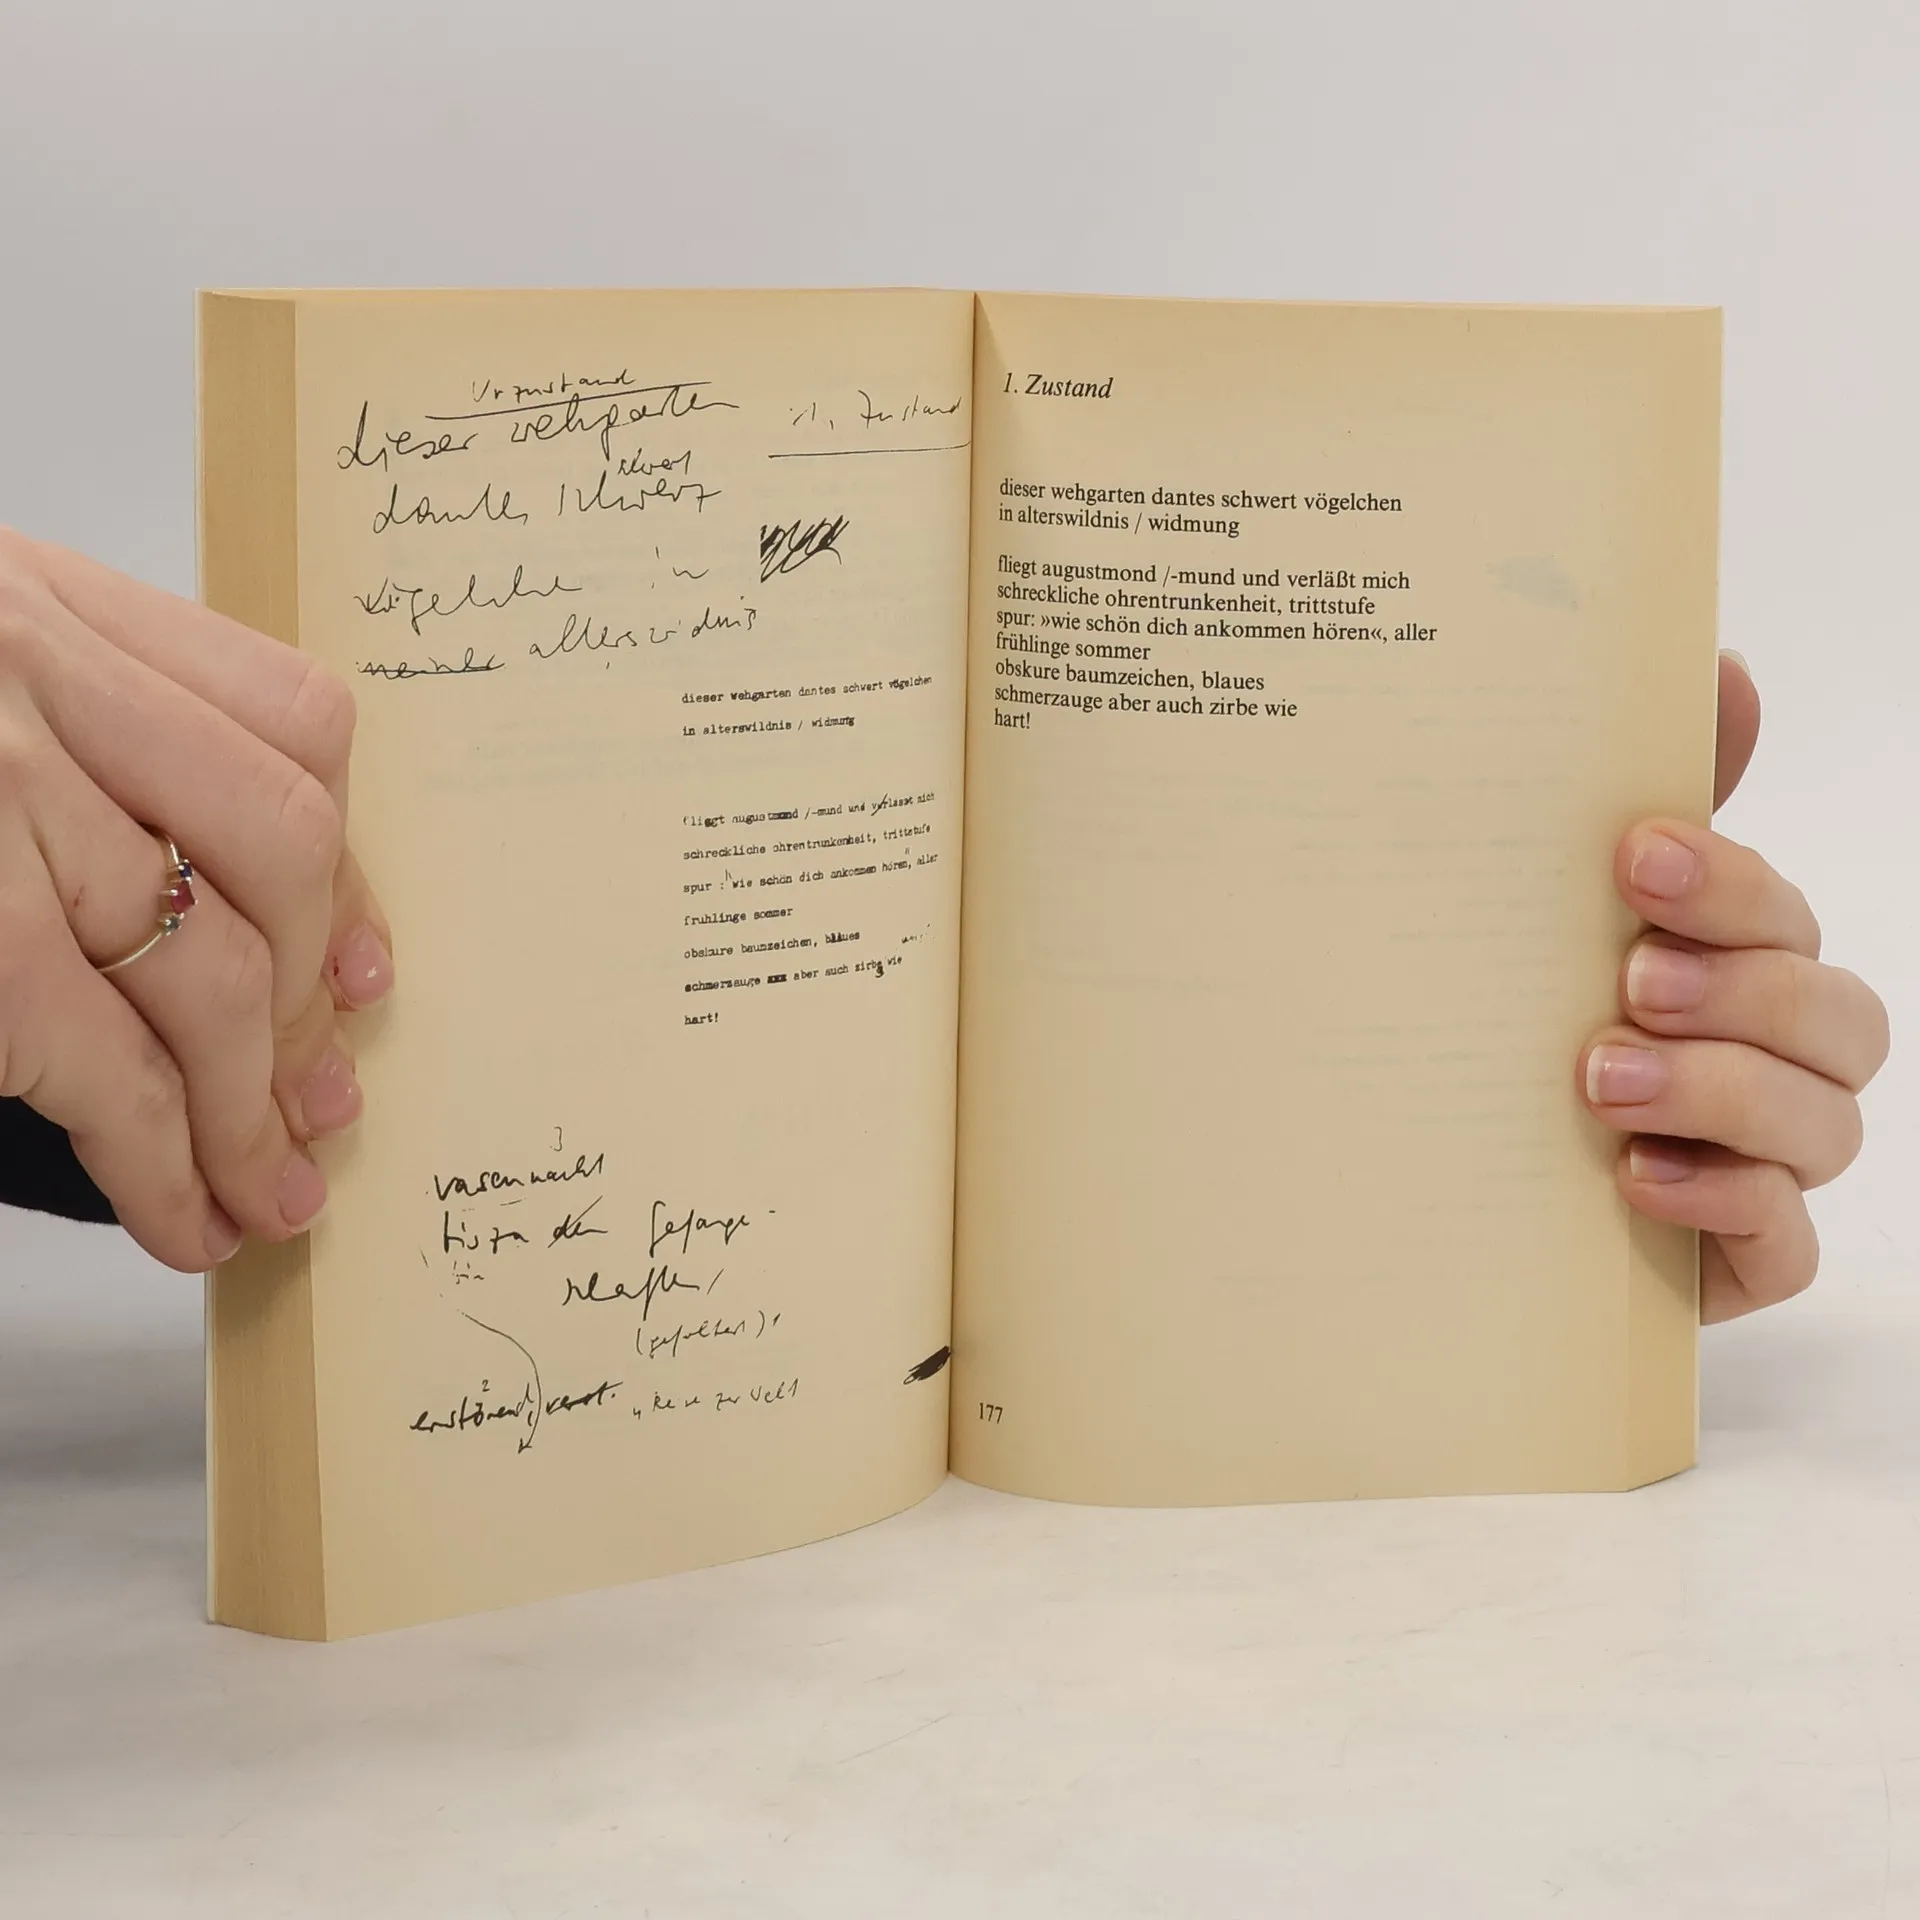 Urzustand
dieser wehgarten
1. Zustand
schwert
dantes schwerz
vögelchen in
meiner alterswildnis
dieser wehgarten dantes schwert vögelchen
in alterswildnis / widmung
fliegt augustmond /-mund und verlässt mich
schreckliche ohrentrunkenheit, trittstufe
spur : "wie schön dich ankommen hören", aller
fruhlinge sommer
obskure baumzeichen, blaues
schmerzauge xxx aber auch zirbe wie
hart!
3
vasennackt
den gefange-
(gefoltert),
2
zur Welt
1. Zustand
dieser wehgarten dantes schwert vögelchen
in alterswildnis / widmung
fliegt augustmond /-mund und verläßt mich
schreckliche ohrentrunkenheit, trittstufe
spur: »wie schön dich ankommen hören«, aller
frühlinge sommer
obskure baumzeichen, blaues
schmerzauge aber auch zirbe wie
hart!
177